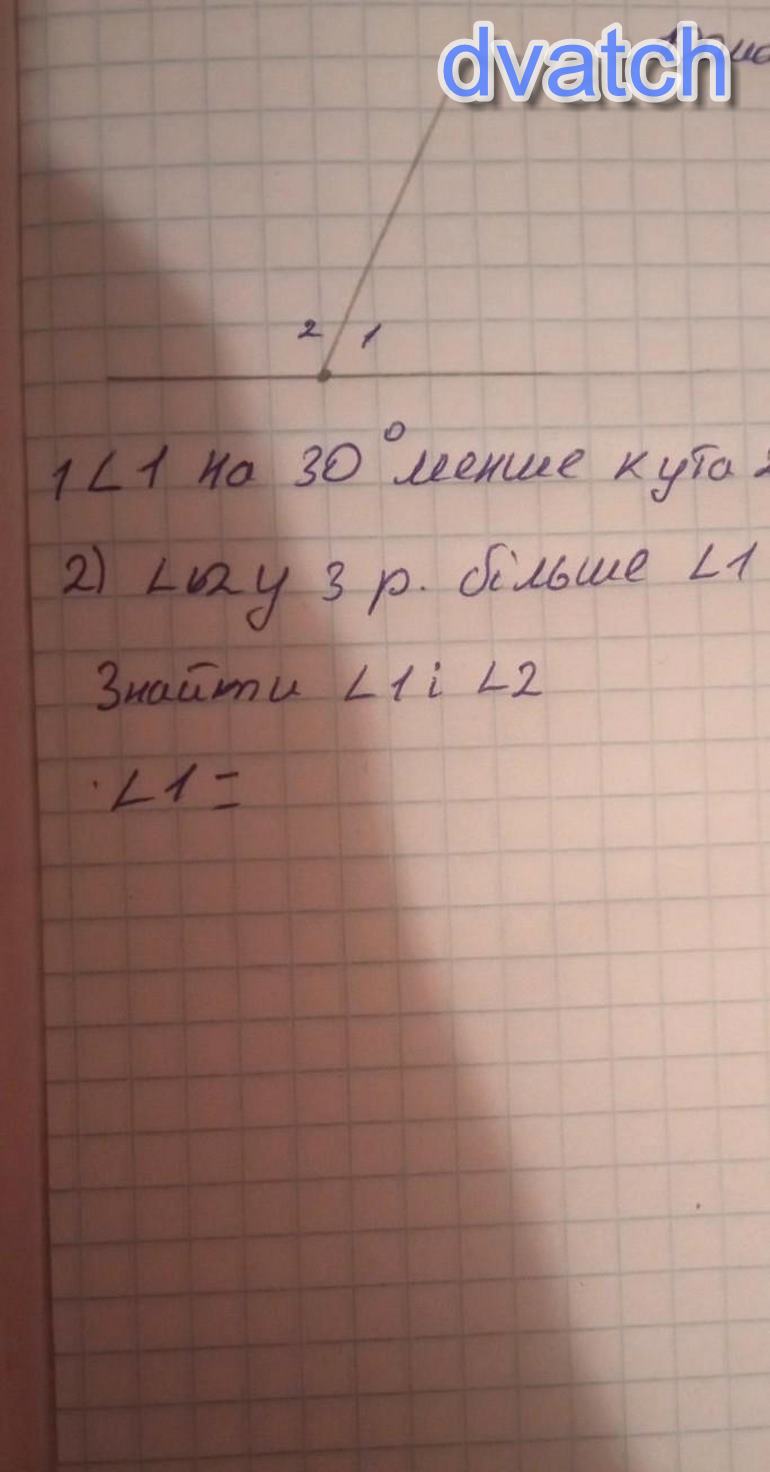 dvatch
2 1
1 ∠1 на 30° менше кута
2) ∠2 у 3 р. більше ∠1
Знайти ∠1 і ∠2
∠1 =